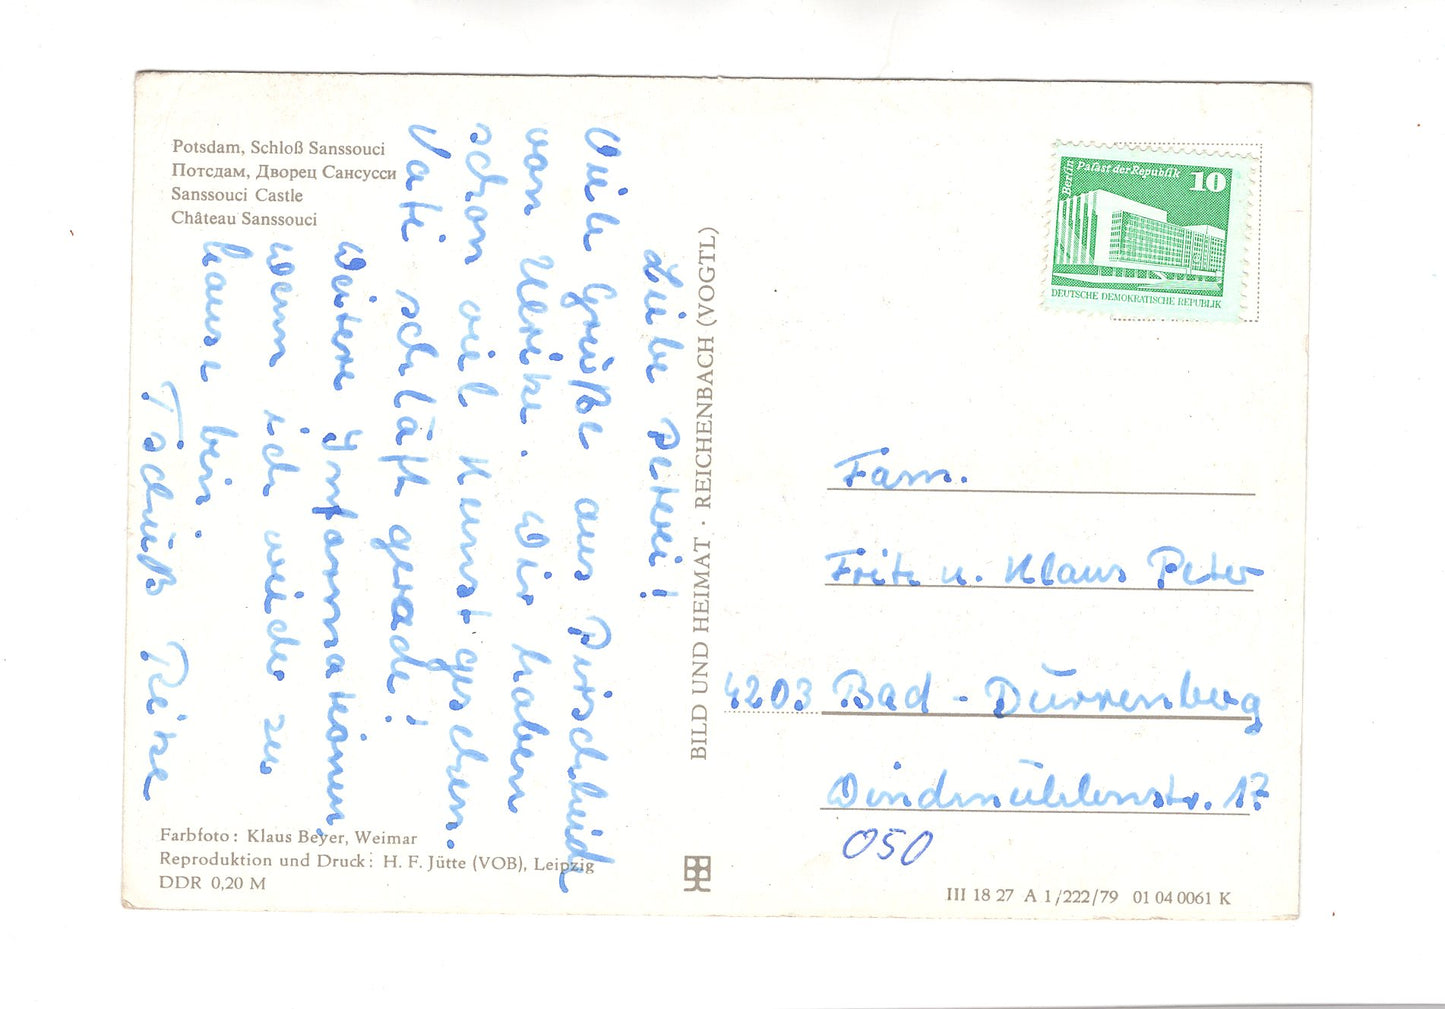 Potsdam, Schloß Sanssouci
Потсдам, Дворец Сансусси
Sanssouci Castle
Château Sanssouci
Liebe Peterei!
Viele Grüße aus Pirscheid
von Ulrike. Wir haben
schon viel Kunst gesehen.
Vati schläft gerade!
Weitere Informationen,
wenn ich wieder zu
hause bin.
Tschüß Rike
Farbfoto: Klaus Beyer, Weimar
Reproduktion und Druck: H. F. Jütte (VOB), Leipzig
DDR 0,20 M
BILD UND HEIMAT · REICHENBACH (VOGTL)
Berlin Palast der Republik 10
DEUTSCHE DEMOKRATISCHE REPUBLIK
Fam.
Fritz u. Klaus Peter
4203 Bad-Dürrenberg
Windmühlenstr. 17
050
III 18 27 A 1/222/79 01 04 0061 K